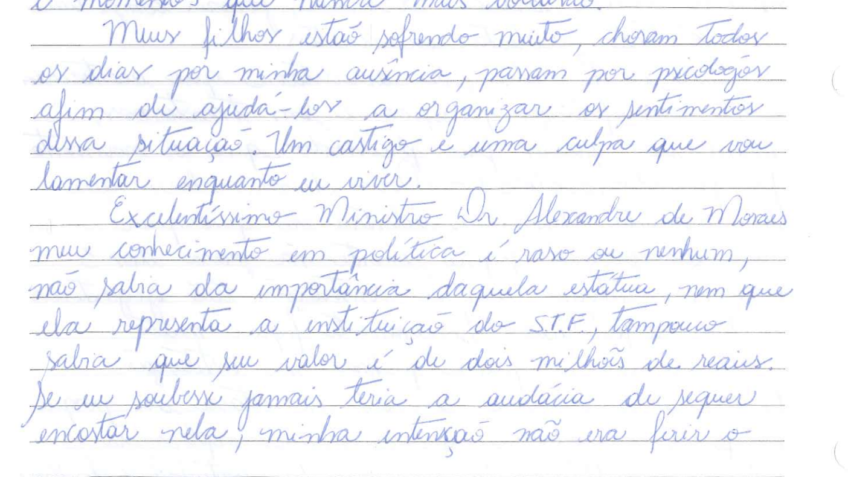 e momentos que nunca mais voltarão.
Meus filhos estaõ sofrendo muito, choram todos
os dias por minha ausência, passam por psicologós
afim de ajudá-los a organizar os sentimentos
dessa situaçaõ. Um castigo e uma culpa que vou
lamentar enquanto eu viver.
Excelentíssimo Ministro Dr. Alexandre de Moraes
meu conhecimento em política é raso ou nenhum,
naõ sabia da importância daquela estátua, nem que
ela representa a instituiçaõ do S.T.F, tampouco
sabia que seu valor é de dois milhoẽs de reais.
Se eu soubesse jamais teria a audácia de sequer
encostar nela, minha intençaõ não era ferir o